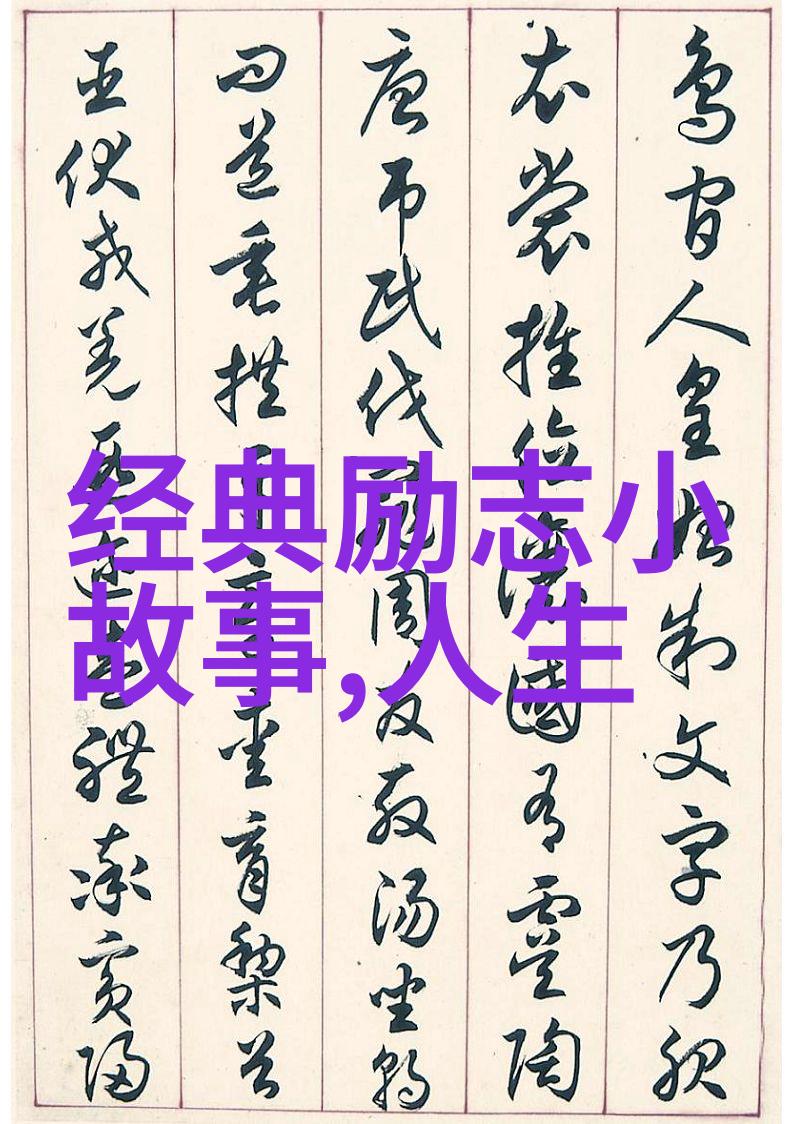 经典励志小
故事,人生
鸟官人皇始制文字乃服
衣裳推位让国有虞陶
唐吊民伐罪周发殷汤坐朝
问道垂拱平章爱育黎首
臣伏戎羌遐迩壹体率宾归